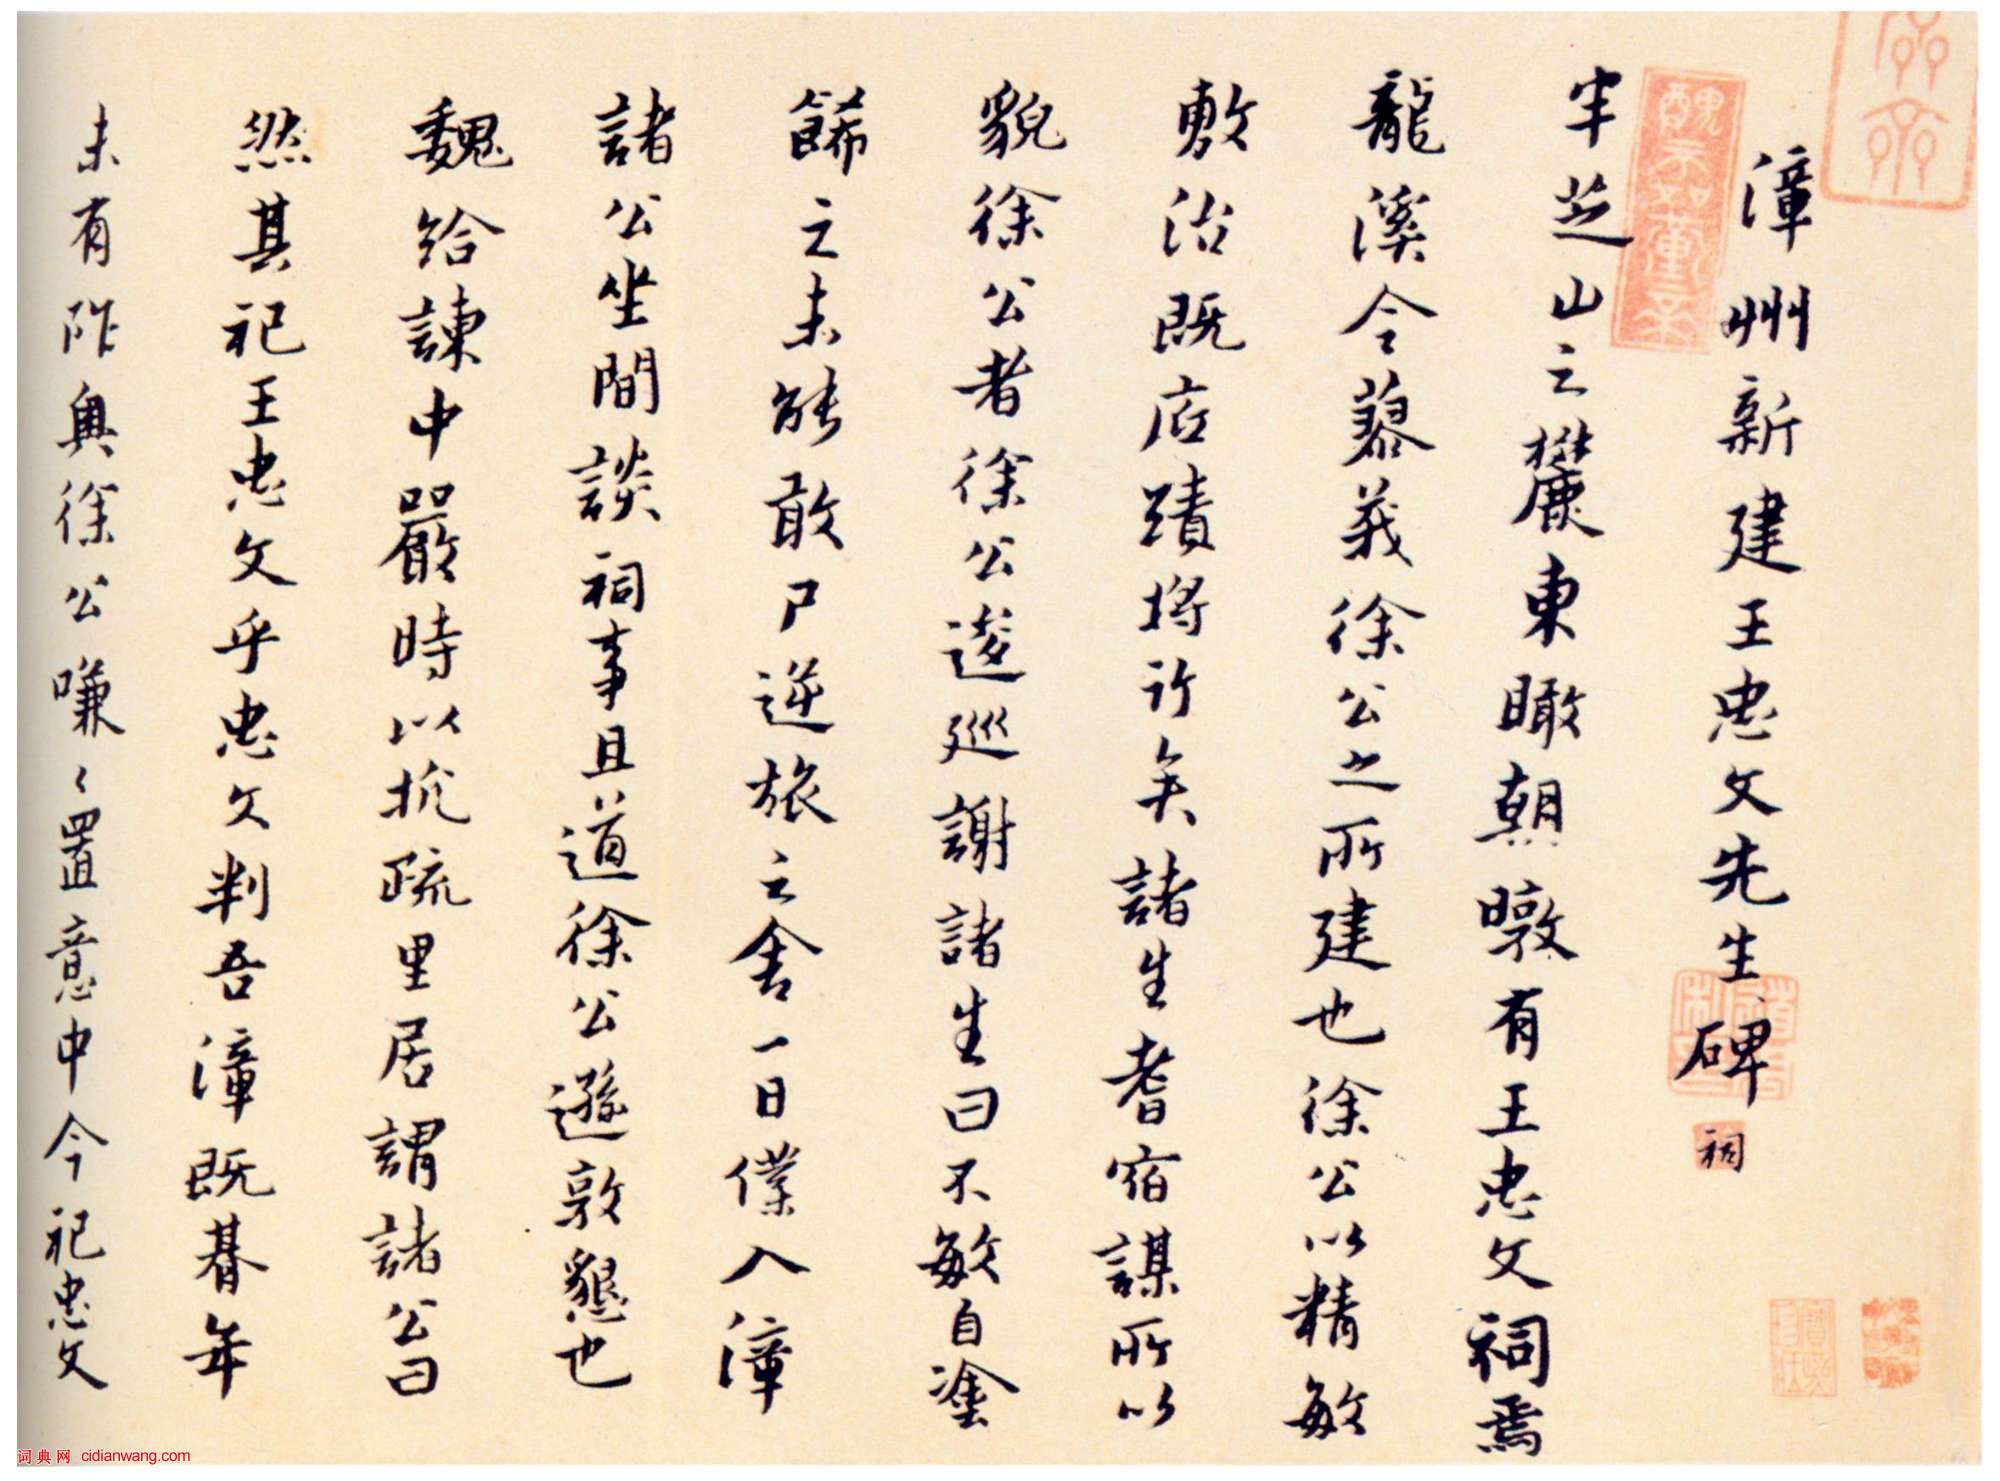 漳州新建王忠文先生碑
祠
半芝山之麓東瞰朝暾有王忠文祠焉
龍溪令蓼莪徐公之所建也徐公以精敏
敷治既底蹟將行矣諸生耆宿謀所以
貌徐公者徐公逡巡謝諸生曰不敏自塗
餙之未能敢尸逆旅之舍一日僕入漳
諸公坐間談祠事且道徐公遜敦懇也
魏給諫中嚴時以抗疏里居謂諸公曰
然其祀王忠文乎忠文判吾漳既朞年
未有阼奥徐公嗛〻置意中今祀忠文
词典网 cidianwang.com